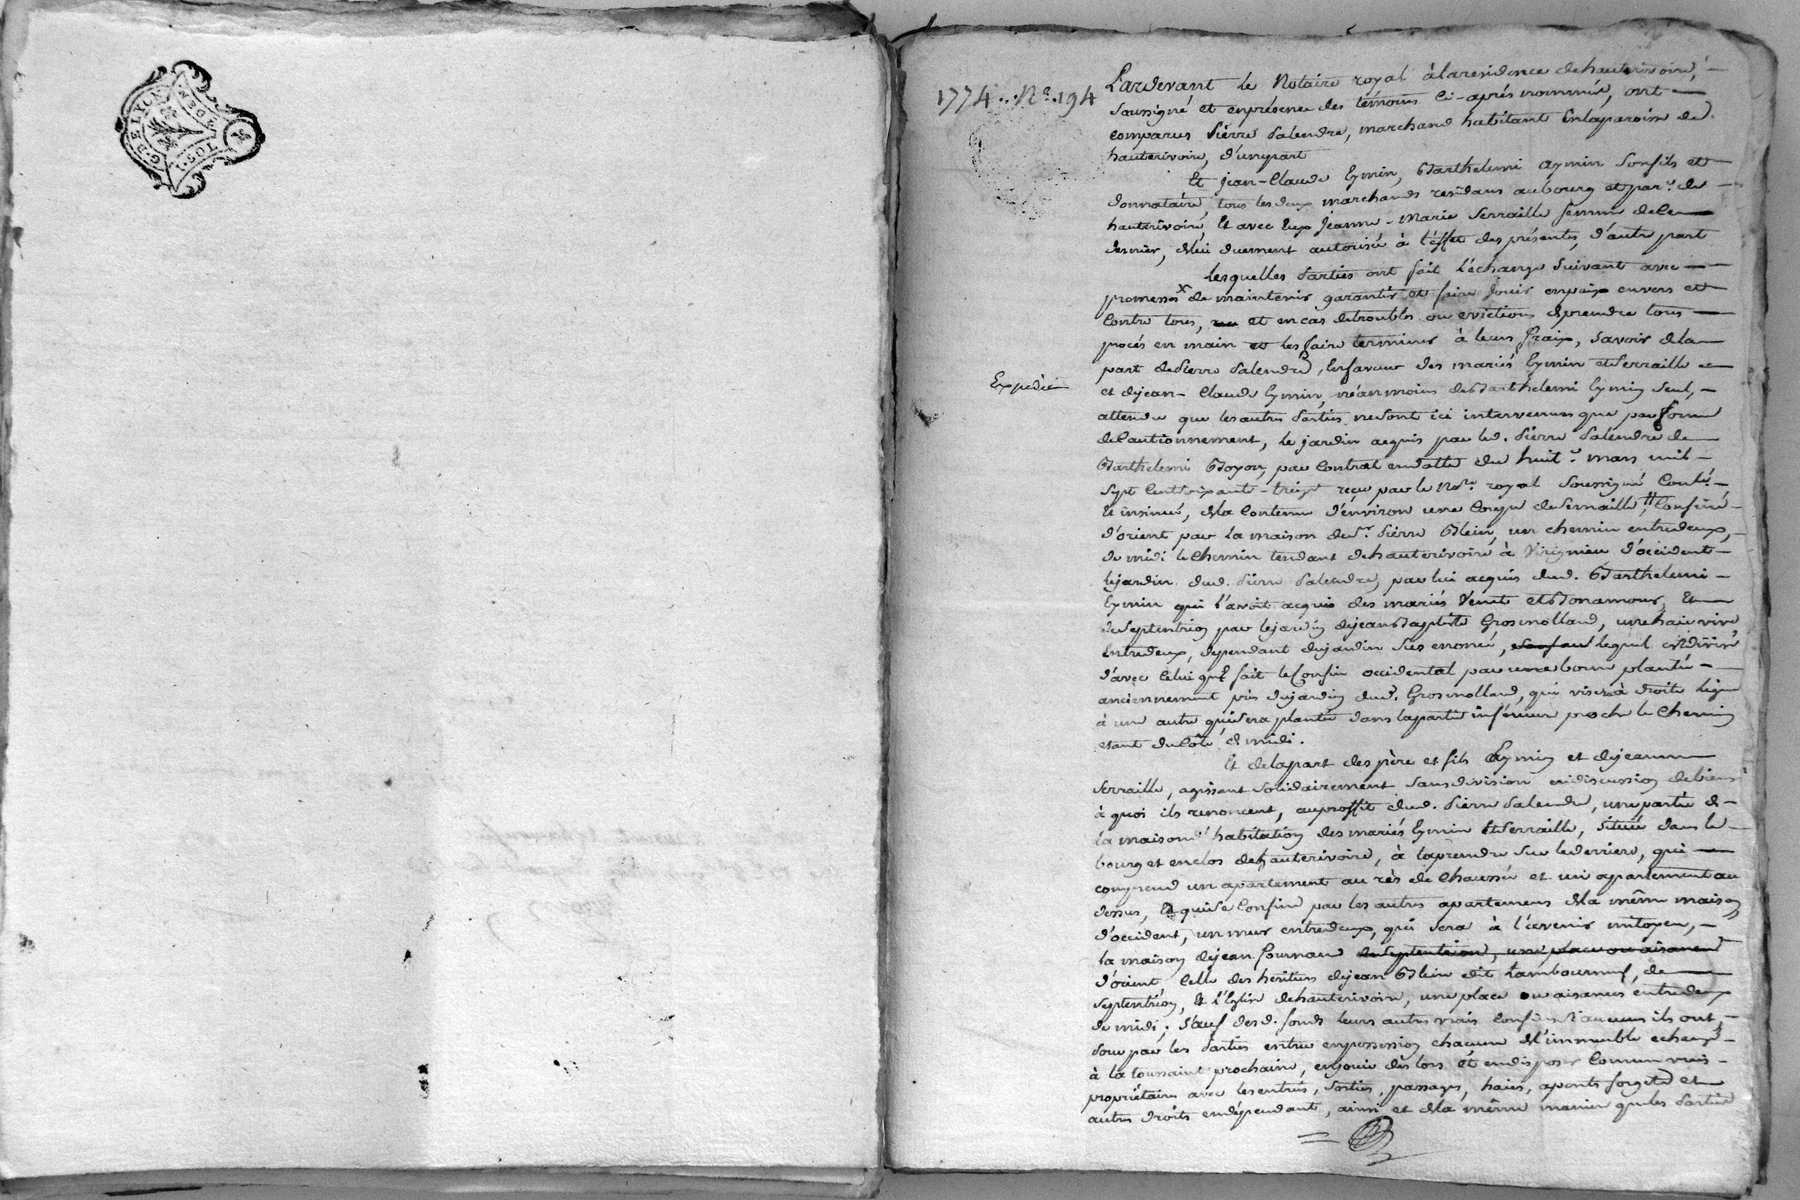 G. DE LYON
1. SOL
8. DEN
1774.. N.º 194
Expediée
Pardevant le Notaire royal à la residence de hauterivoire,
soussigné et en presence des temoins ci-après nommés, ont
comparus Pierre Salendre, marchand habitant en la paroisse de
hauterivoire, d'une part
Et jean-Claude Eymin, Barthelemi Eymin son fils et
donnataire, tous les deux marchands residans au bourg et par.e de
hauterivoire, Et avec Eux Jeanne-Marie Serraille femme de ce
dernier, de lui duement autorisée à l'effet des présentes, d'autre part
lesquelles Parties ont fait l'échange suivant avec
promesses de maintenir garantir et faire jouir en paix envers et
Contre tous, et en cas de troubles ou evictions de prendre tous
procés en main et les faire terminer à leurs fraix, savoir de la
part de Pierre Salendre, En faveur des mariés Eymin et Serraille
et de jean-Claude Eymin, néanmoins de Barthelemi Eymin seul,
attendu que les autres Parties ne sont ici intervenues que par forme
de Cautionnement, le jardin acquis par led. Pierre Salendre de
Barthelemi Boyon, par Contrat en datte du huit mars mil
Sept Cent soixante-treize reçu par le No.re royal soussigné Contr.
Et insinué, de la Contenue d'environ une Coupe de semaille, Confiné
d'orient par la maison de S.r Pierre Blein, un chemin entredeux,
de midi le Chemin tendant de hauterivoire à Virignieu d'occident
le jardin dud. Pierre Salendre, par lui acquis dud. Barthelemi
Eymin qui l'avoit acquis des mariés Venet et Bonamour, Et
de Septentrion par le jardin de jean Baptiste Grosmolland, une haie vive
Entredeux, dependant du jardin Sus enoncé, lequel est divisé
d'avec Celui qui fait le Confin occidental par une borne plantée
anciennement près du jardin dud. Grosmolland, qui visera à droite ligne
à une autre qui sera plantée dans la partie inférieure proche le Chemin
etant du Côté de midi.
Et de la part des père et fils Eymin et de jeanne
Serraille, agissant solidairement sans division ni discussion de biens
à quoi ils renoncent, au proffit dud. Pierre Salendre, une partie de
la maison d'habitation des mariés Eymin Et Serraille, située dans le
bourg et enclos de hauterivoire, à la prendre sur le derriere, qui
comprend un apartement au rès de Chaussée et un apartement au
dessus, Et qui se Confine par les autres apartemens de la même maison
d'occident, un mur entredeux, qui sera à l'avenir mitoyen,
la maison de jean Fournand de Septentrion, une place ou aisances
d'orient, Celle des heritiers de jean Blein dit Tambourneuf, de
Septentrion, Et l'Eglise de hauterivoire, une place ou aisances entredeux
de midi; Sauf desd. fonds leurs autres vrais Confins si aucuns ils ont
pour par les Parties entrer en possession chacune de l'immeuble echangé
à la toussaint prochaine, en jouir dès lors et en disposer Comme vrais
propriétaires avec les entrées, Sorties, passages, haies, aparts forgets et
autres droits en dépendant, ainsi et de la même maniere que les Parties